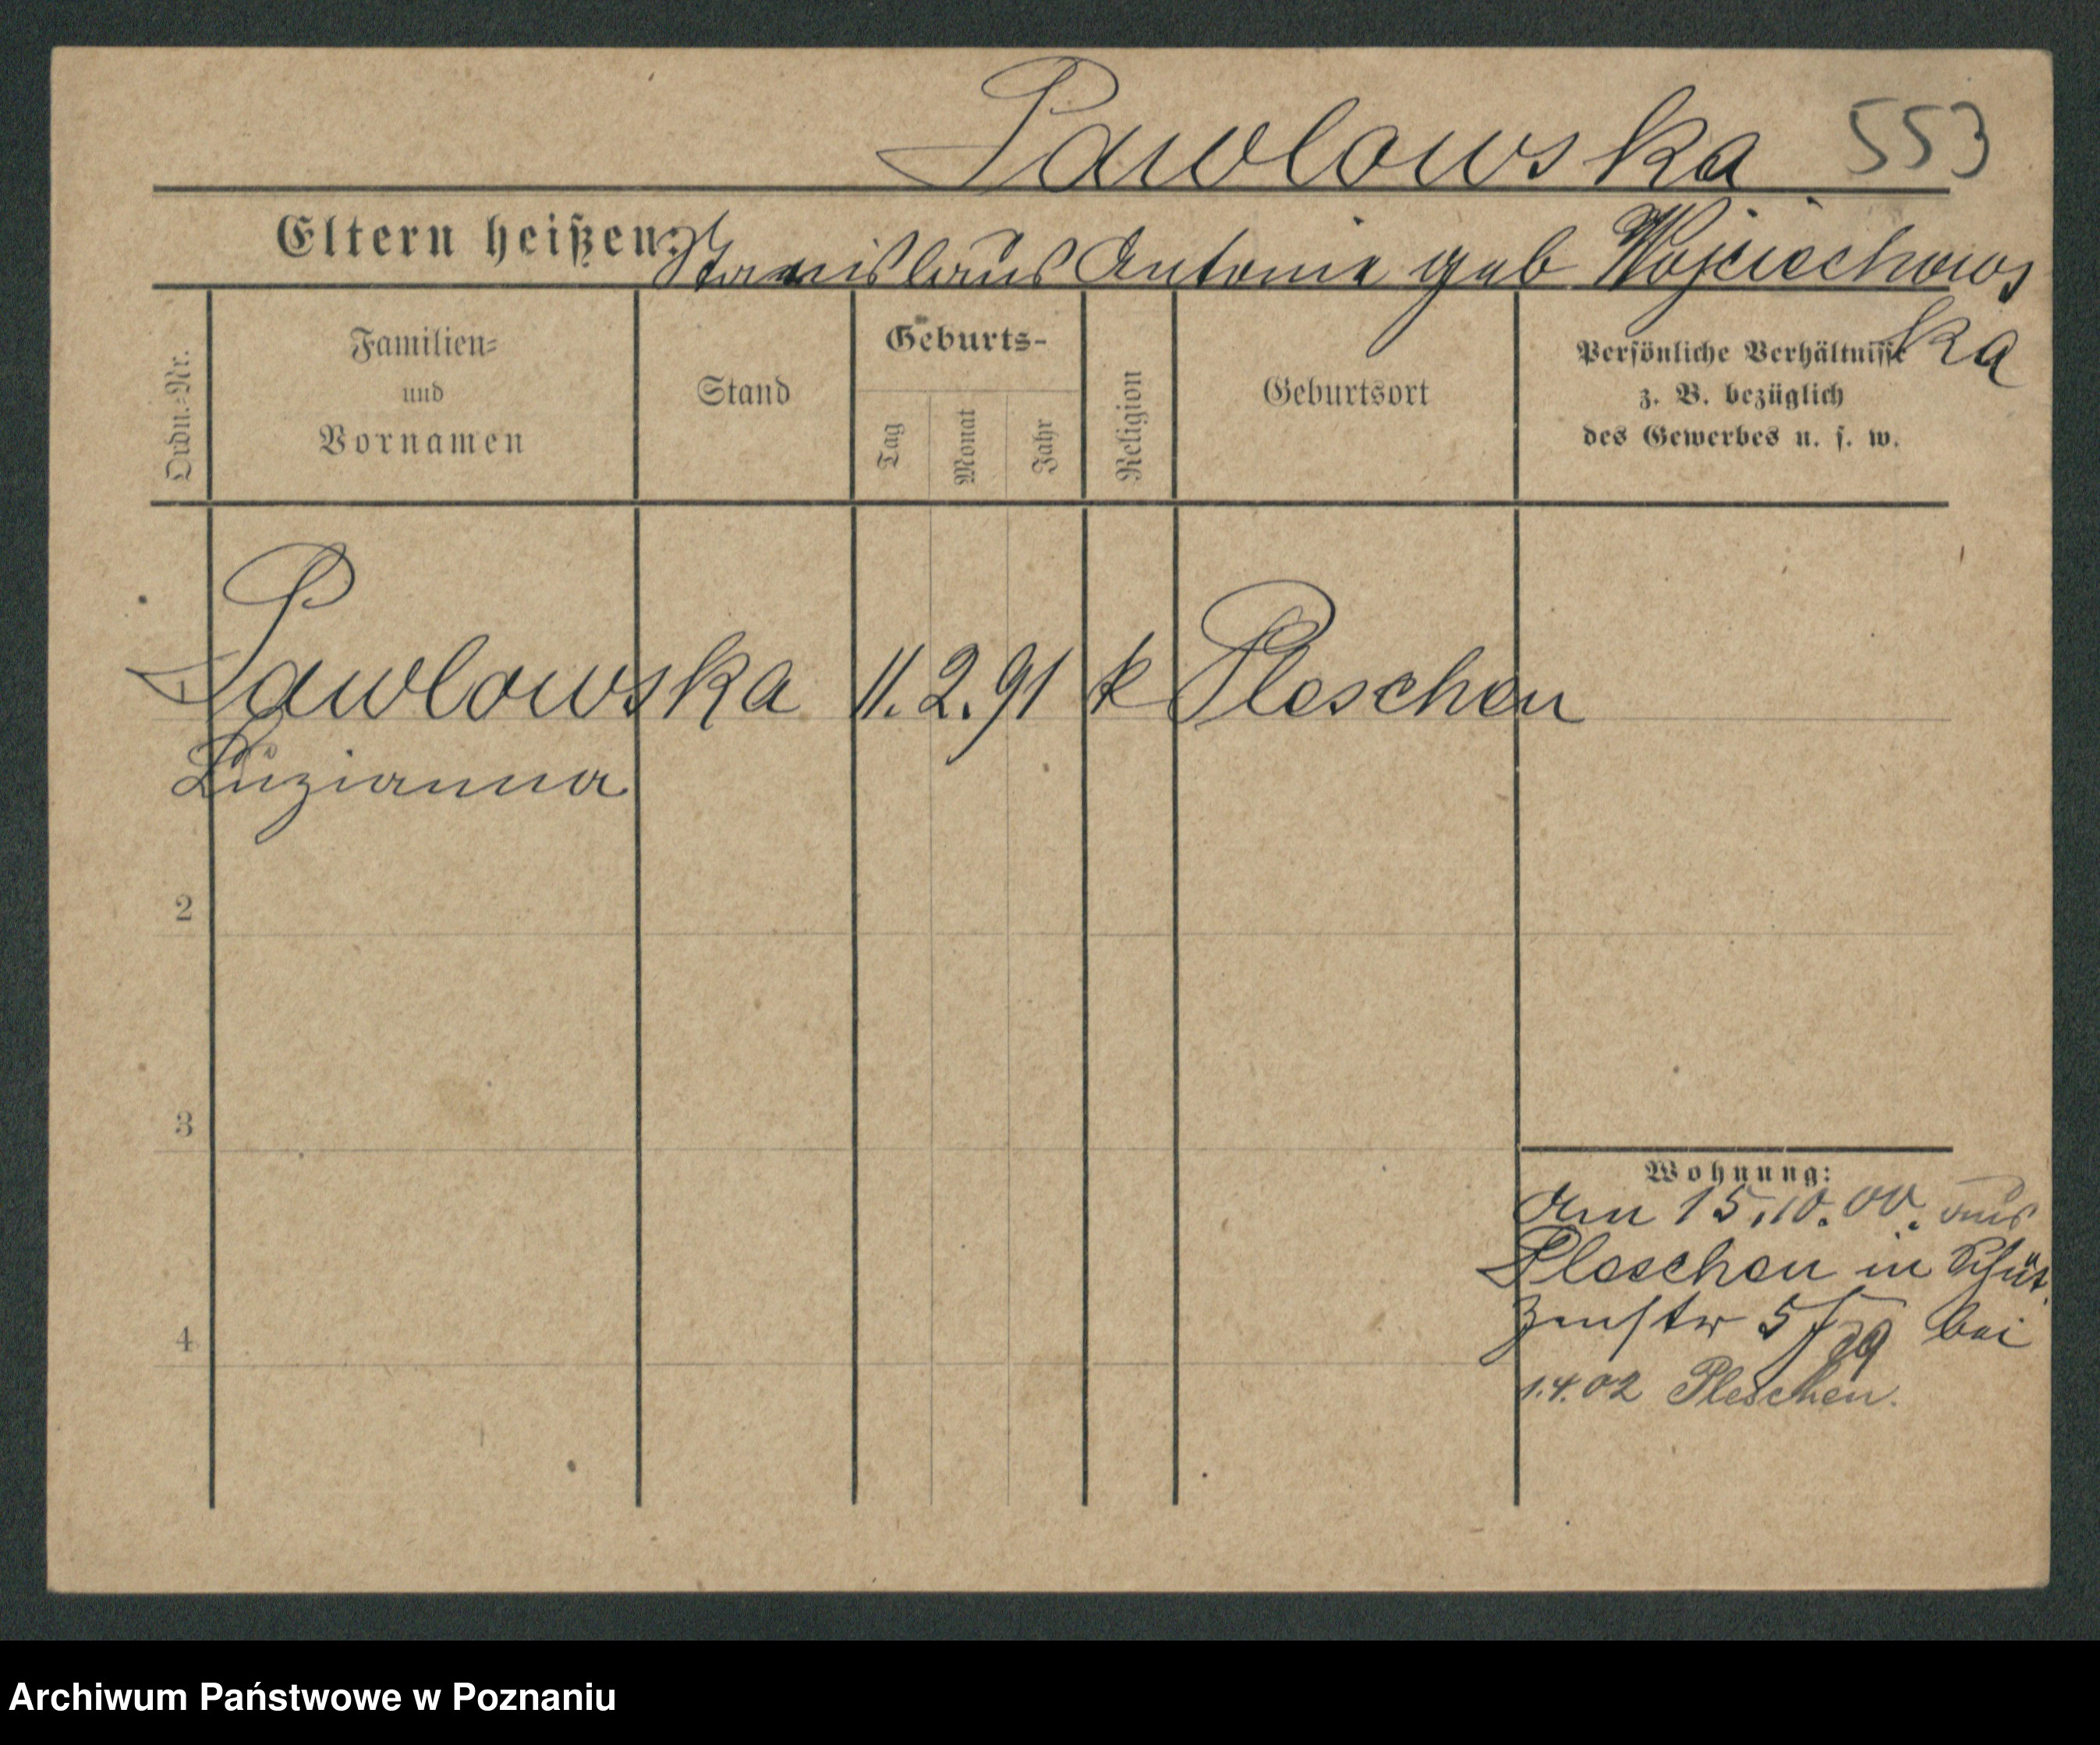 Pawlowska 553
Eltern heißen: Stanislaus Antonie geb Wojciechows
ka
Ordn.-Nr.
Familien-
und
Vornamen
Stand
Geburts-
Tag
Monat
Jahr
Religion
Geburtsort
Persönliche Verhältnisse
z. B. bezüglich
des Gewerbes u. s. w.
1 Pawlowska 11. 2. 91 k Pleschen
Luzianna
2
3
4
Wohnung:
Am 15.10.00. aus
Pleschen in Schüt
zenstr bei
1.4.02 Pleschen.
Archiwum Państwowe w Poznaniu